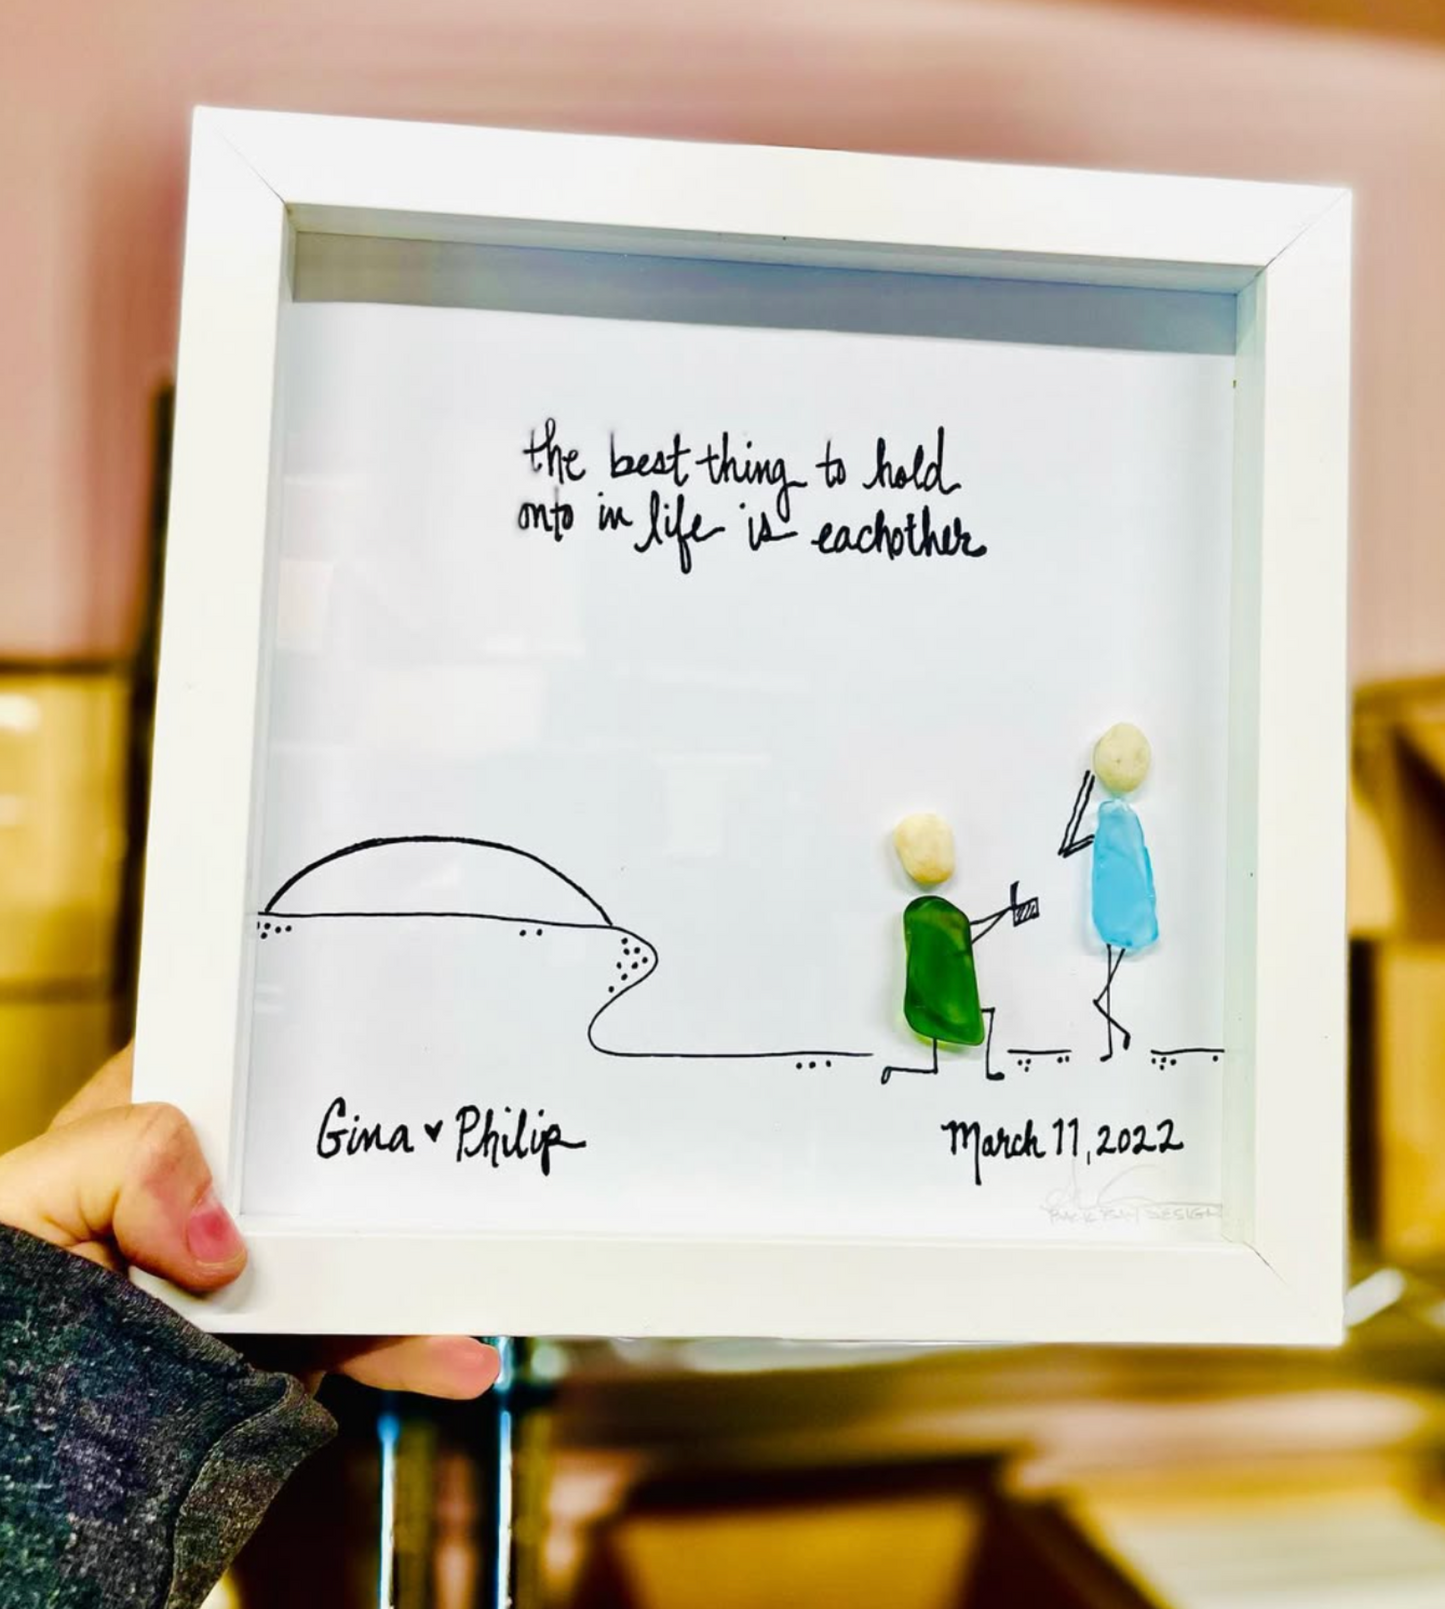 the best thing to hold
onto in life is eachother
Gina ♥ Philip
March 11, 2022